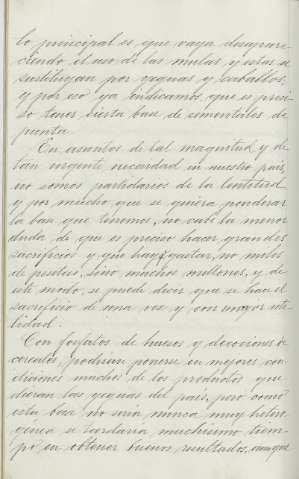 lo principal es que vaya desapare-
ciendo el uso de las mulas y estas se
sustituyan por yeguas y caballos,
y por eso ya indicamos, que es preci-
so tener cierta base de sementales de
punta.
En asuntos de tal magnitud y de
tan urgente necesidad en nuestro pais,
no somos partidarios de la lentitud
y por mucho que se quiera ponderar
la base que tenemos, no cabe la menor
duda de que es preciso hacer grandes
sacrificios y que hay que gastar, no miles
de pesetas, sino muchos millones, y de
este modo, se puede decir que se hace el
sacrificio de una vez y con mayor uti-
lidad.
Con fosfatos de huesos y decocciones de
cereales, podrian ponerse en mejores con-
diciones muchos de los productos que
dieran las yeguas del pais, pero como
esta base no seria nunca muy hetero-
génea se tardaria muchisimo tiem-
po en obtener buenos resultados, aunque